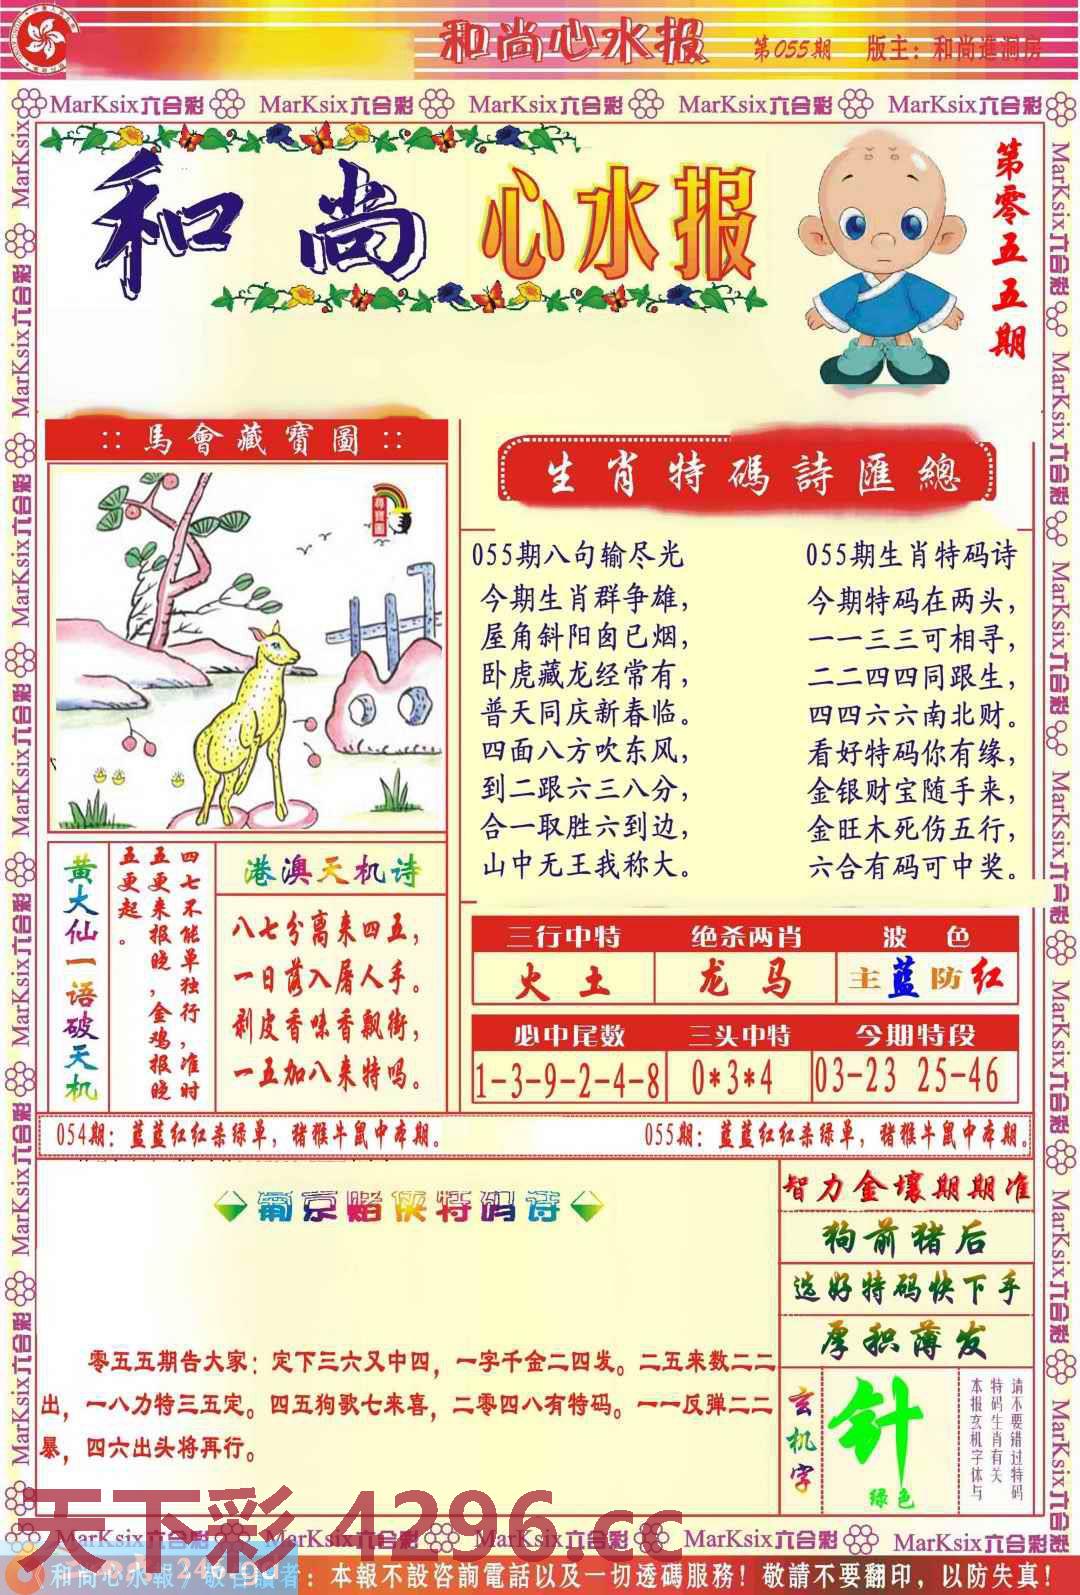 和尚心水报 第055期 版主：和尚進洞房
MarKsix六合彩 MarKsix六合彩 MarKsix六合彩 MarKsix六合彩 MarKsix六合彩
和尚心水报
第零五五期
::馬會藏寶圖::
生肖特碼詩匯總
055期八句输尽光
今期生肖群争雄，
屋角斜阳囱已烟，
卧虎藏龙经常有，
普天同庆新春临。
四面八方吹东风，
到二跟六三八分，
合一取胜六到边，
山中无王我称大。
055期生肖特码诗
今期特码在两头，
一一三三可相寻，
二二四四同跟生，
四四六六南北财。
看好特码你有缘，
金银财宝随手来，
金旺木死伤五行，
六合有码可中奖。
黄大仙一语破天机
四七不能单独行，准时
五更来报晚，金鸡报晚
五更起。
港澳天机诗
八七分离来四五，
一日落入屠人手。
剥皮香味香飘街，
一五加八来特吗。
三行中特 绝杀两肖 波色
火土 龙马 主蓝防红
必中尾数 三头中特 今期特段
1-3-9-2-4-8 0*3*4 03-23 25-46
054期：蓝蓝红红杀绿单，猪猴牛鼠中本期。 055期：蓝蓝红红杀绿单，猪猴牛鼠中本期。
葡京赌侠特码诗
零五五期告大家：定下三六又中四，一字千金二四发。二五来数二二
出，一八力特三五定。四五狗歌七来喜，二零四八有特码。一一反弹二二
暴，四六出头将再行。
智力金壤期期准
狗前猪后
选好特码快下手
厚积薄发
玄机字
针
绿色
请不要错过特码
特码生肖有关
本报玄机字体与
天下彩 4296.cc
MarKsix六合彩 MarKsix六合彩 MarKsix六合彩 MarKsix六合彩 MarKsix六合彩
和尚心水報，敬告讀者：本報不設咨詢電話以及一切透碼服務！敬請不要翻印，以防失真！